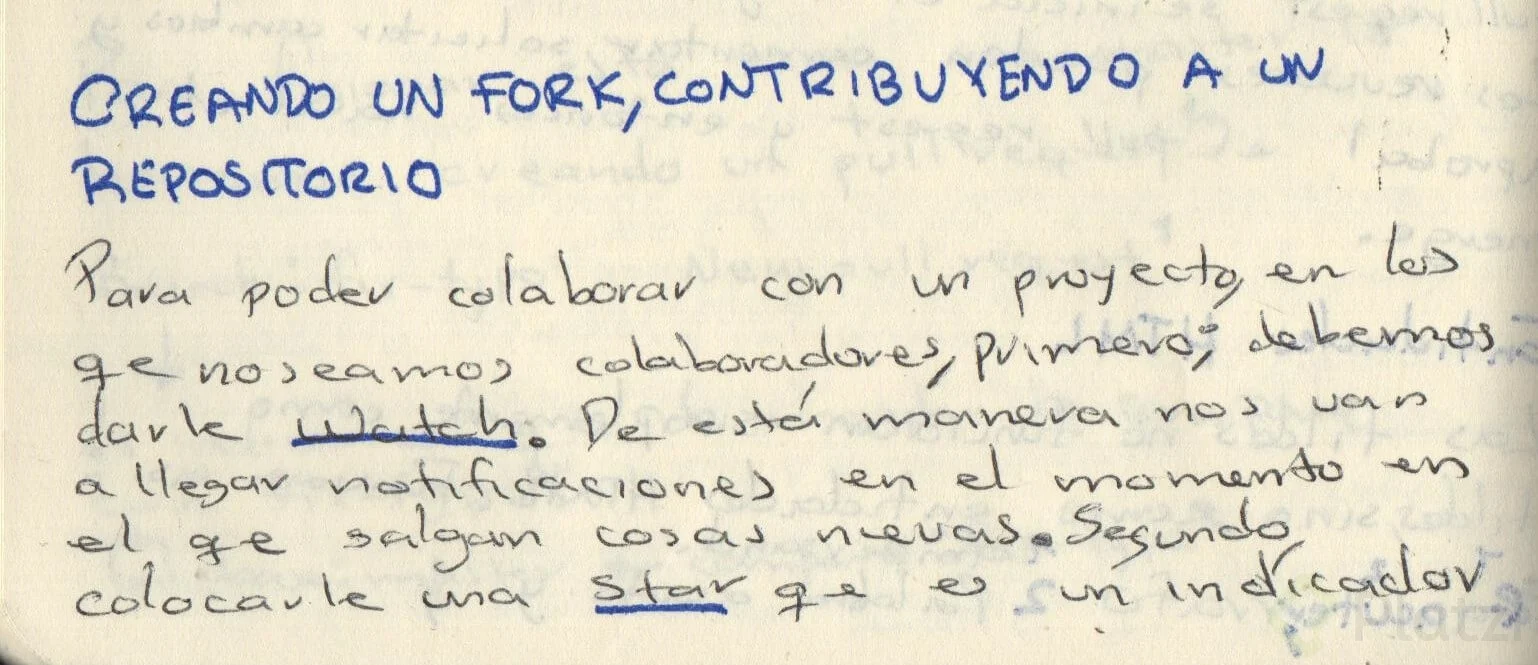 CREANDO UN FORK, CONTRIBUYENDO A UN
REPOSITORIO
Para poder colaborar con un proyecto, en los
qe no seamos colaboradores, primero; debemos
darle Watch. De está manera nos van
a llegar notificaciones en el momento en
el qe salgan cosas nuevas. Segundo,
colocarle una Star qe es un indicador
Platzi